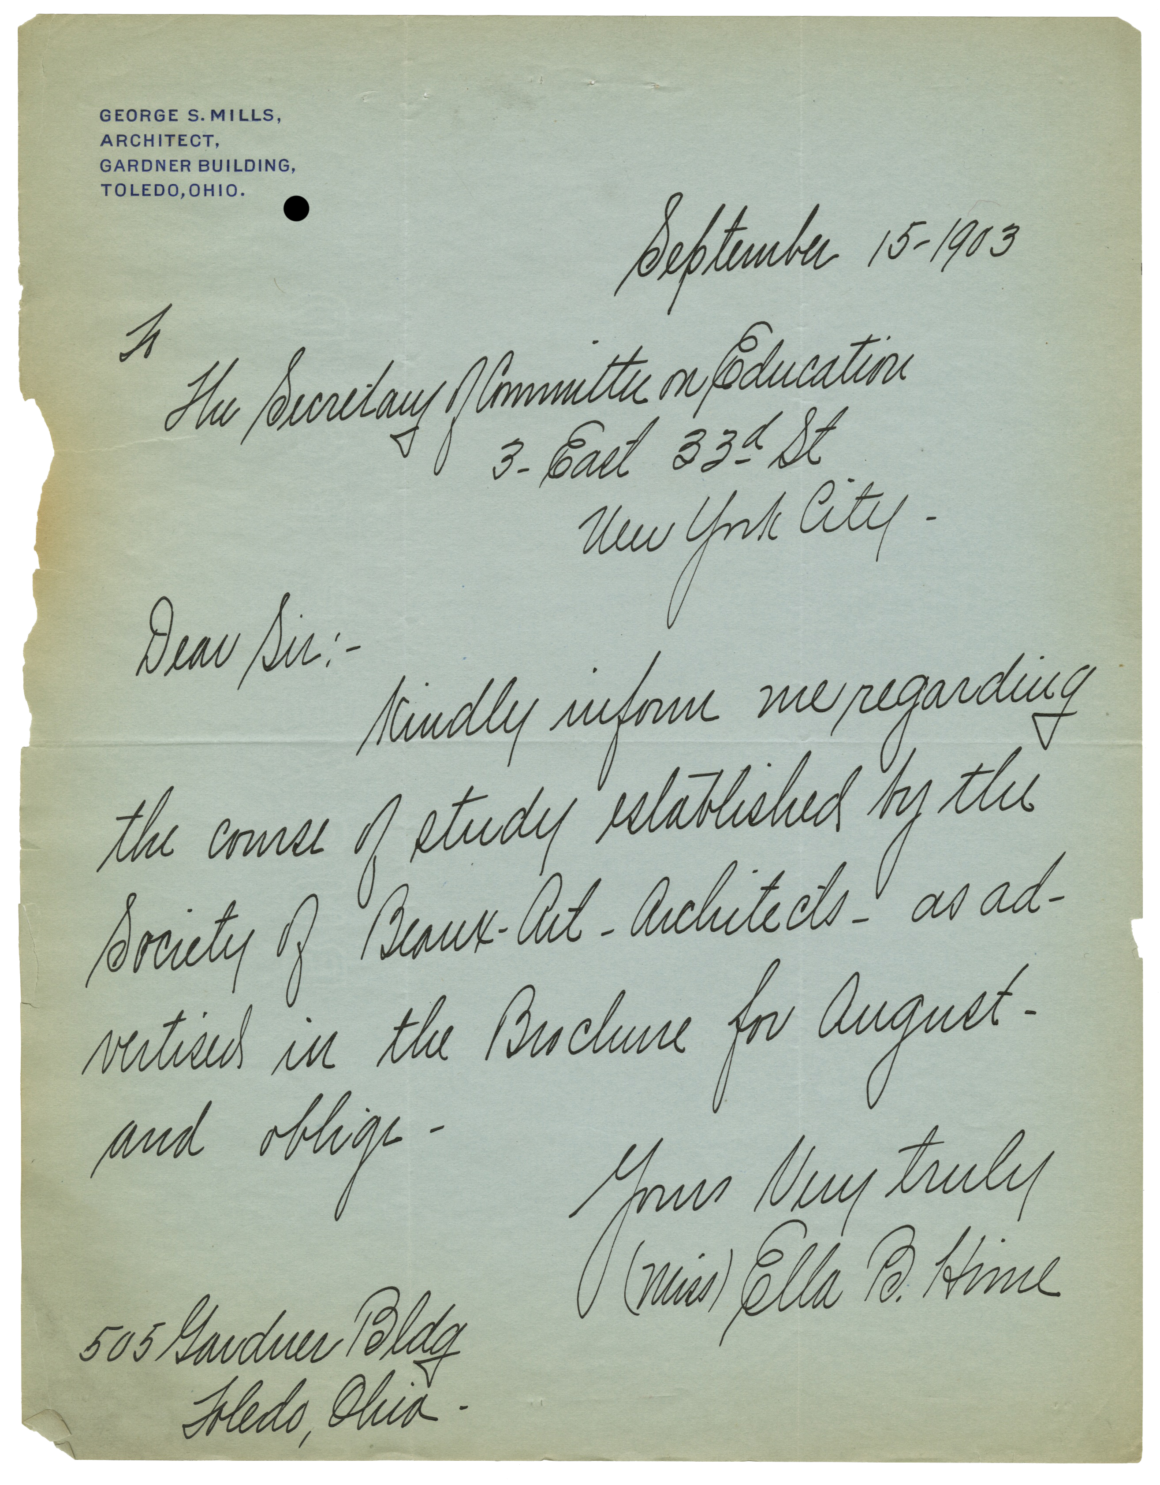 GEORGE S. MILLS,
ARCHITECT,
GARDNER BUILDING,
TOLEDO, OHIO.
September 15-1903
To
The Secretary of Committee on Education
3- East 33d St
New York City -
Dear Sir:-
Kindly inform me regarding
the course of study established by the
Society of Beaux-Art-Architects- as ad-
vertised in the Brochure for August -
and oblige -
Yours Very truly
(Miss) Ella B. Hime
505 Gardner Bldg
Toledo, Ohio -